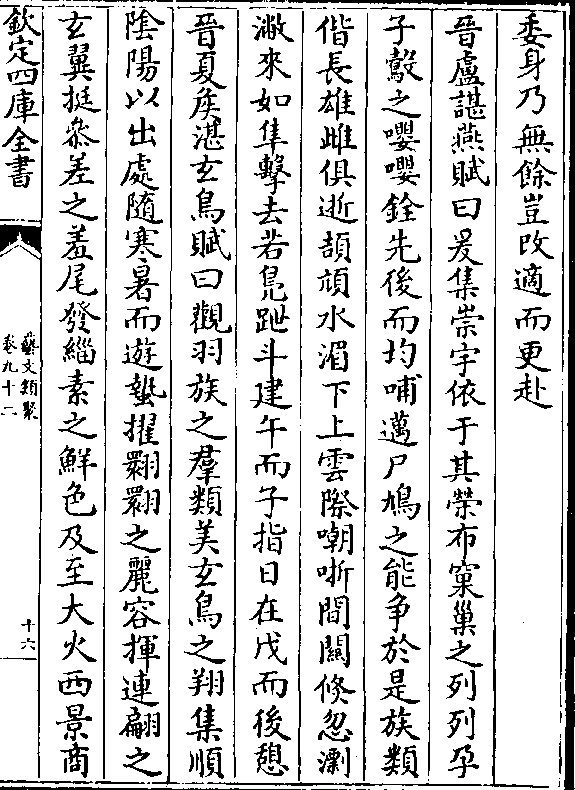 委身乃無餘豈改適而更赴
晉盧諶燕賦曰爰集崇宇依于其榮布窠巢之列列孕
子鷇之嚶嚶銓先後而均哺邁尸鳩之能爭於是族類
偕長雄雌俱逝頡頏水湄下上雲際嘲哳間關倏忽瀏
潎來如隼擊去若鳧跐斗建午而子指日在戊而後憩
晉夏侯湛玄鳥賦曰觀羽族之羣類美玄鳥之翔集順
陰陽以出處隨寒暑而遊蟄擢翾翾之麗容揮連翩之
玄翼挺參差之羞尾發緇素之鮮色及至大火西景商
欽定四庫全書
藝文類聚
卷九十二
十六